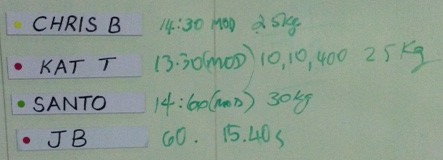 CHRIS B 14:30 MOD 25kg
KAT T 13.30(MOD) 10,10,400 25Kg
SANTO 14:60(MOD) 30kg
JB 60. 15.40s